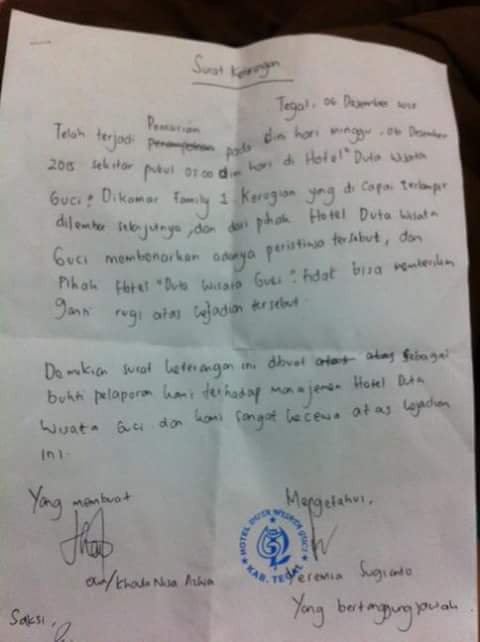 Surat Keterangan
Tegal, 06 Desember 2015
Telah terjadi Pencurian pada dini hari minggu, 06 Desember
2015 sekitar pukul 05:00 dini hari di Hotel "Duta Wisata
Guci". Dikamar Family 1. Kerugian yang di capai terlampir
dilembar selanjutnya, dan dari pihak Hotel Duta Wisata
Guci membenarkan adanya peristiwa tersebut, dan
Pihak Hotel "Duta Wisata Guci" tidak bisa memberikan
ganti rugi atas kejadian tersebut.
Demikian surat keterangan ini dibuat sebagai
bukti pelaporan kami terhadap manajemen Hotel Duta
Wisata Guci dan kami sangat kecewa atas kejadian
ini.
Yang membuat
Mengetahui,
HOTEL DUTA WISATA GUCI
KAB. TEGAL
Khoula Nisa
Yeremia Sugianto
Yang bertanggung jawab
Saksi,